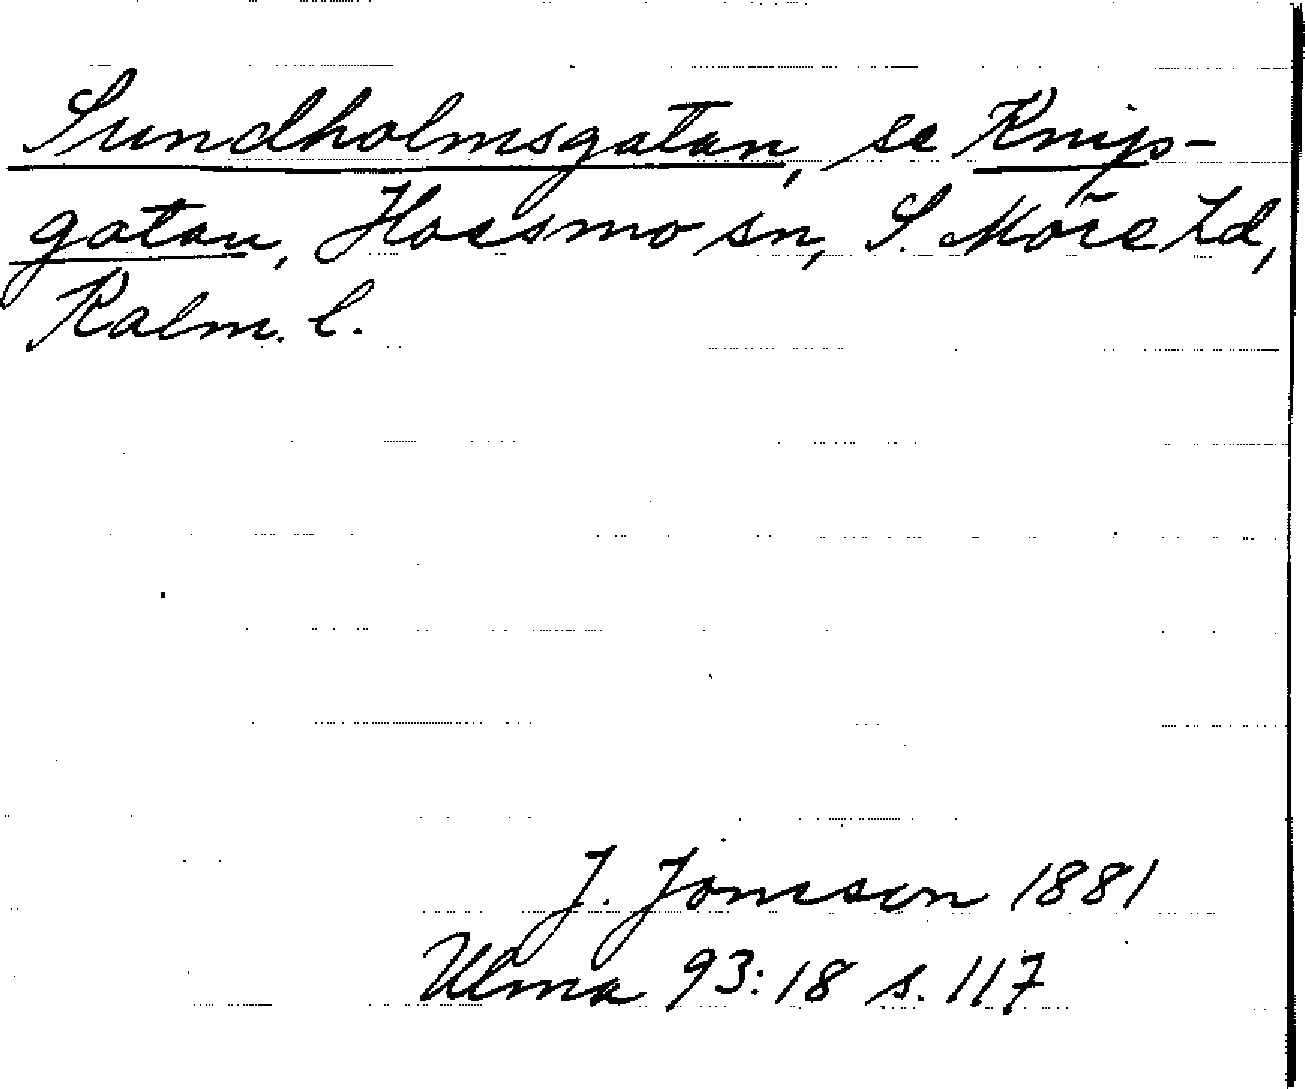 Sundholmsgatan, se Knip-
gatan, Hossmo sn, S. Möre hd,
Kalm. l.
J. Jonsson 1881
Ulma 93:18 s. 117